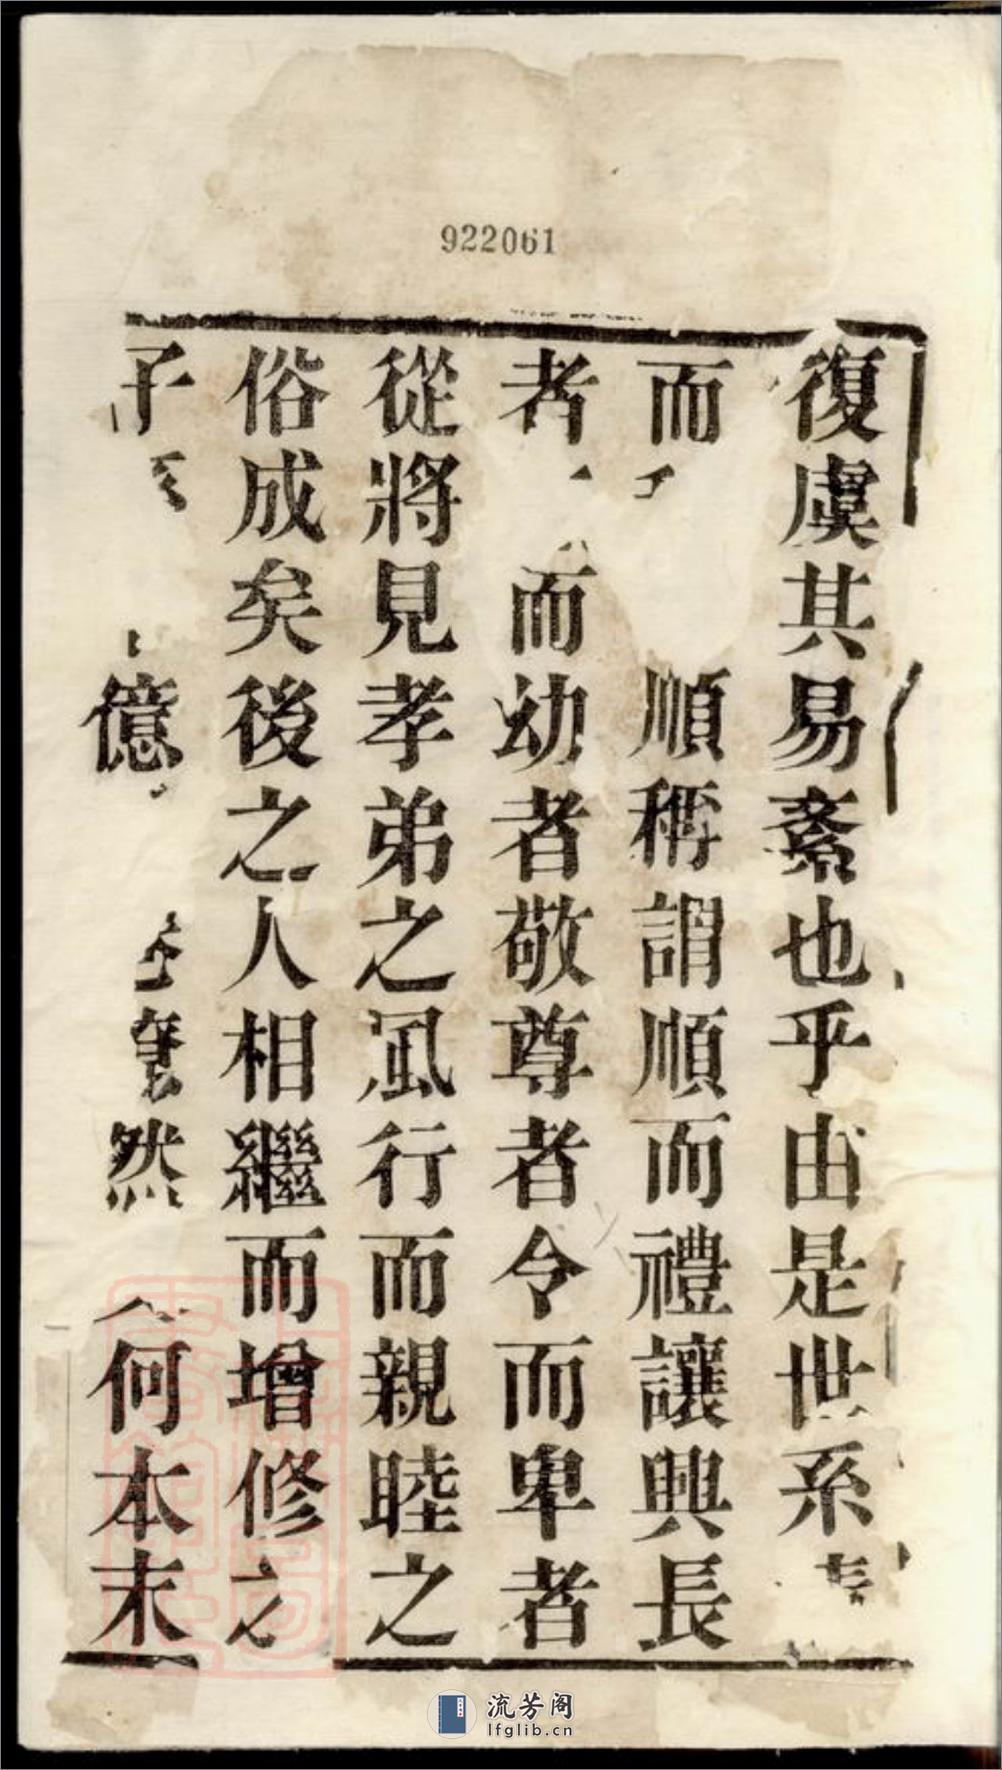 922061
復虞其易紊也乎由是世系
而順稱謂順而禮讓興長
者而幼者敬尊者令而卑者
從將見孝弟之風行而親睦之
俗成矣後之人相繼而增修之
子億然何本末
流芳阁
lfglib.cn